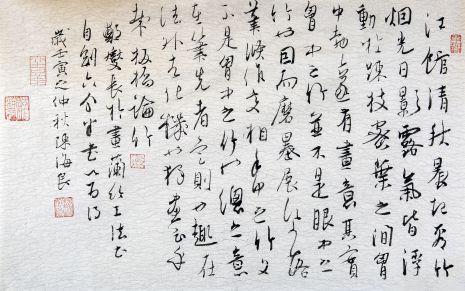 江館清秋晨起看竹
烟光日影露氣皆浮
動於疎枝密葉之間胸
中勃勃遂有畫意其實
胸中之竹並不是眼中之
竹也因而磨墨展紙落
筆倏作變相手中之竹又
不是胸中之竹也總之意
在筆先者定則也趣在
法外者化機也獨畫云乎
哉 板橋論竹
鄭燮長於畫蘭竹工法書
自創六分半書
歲壬寅之仲秋陳海良